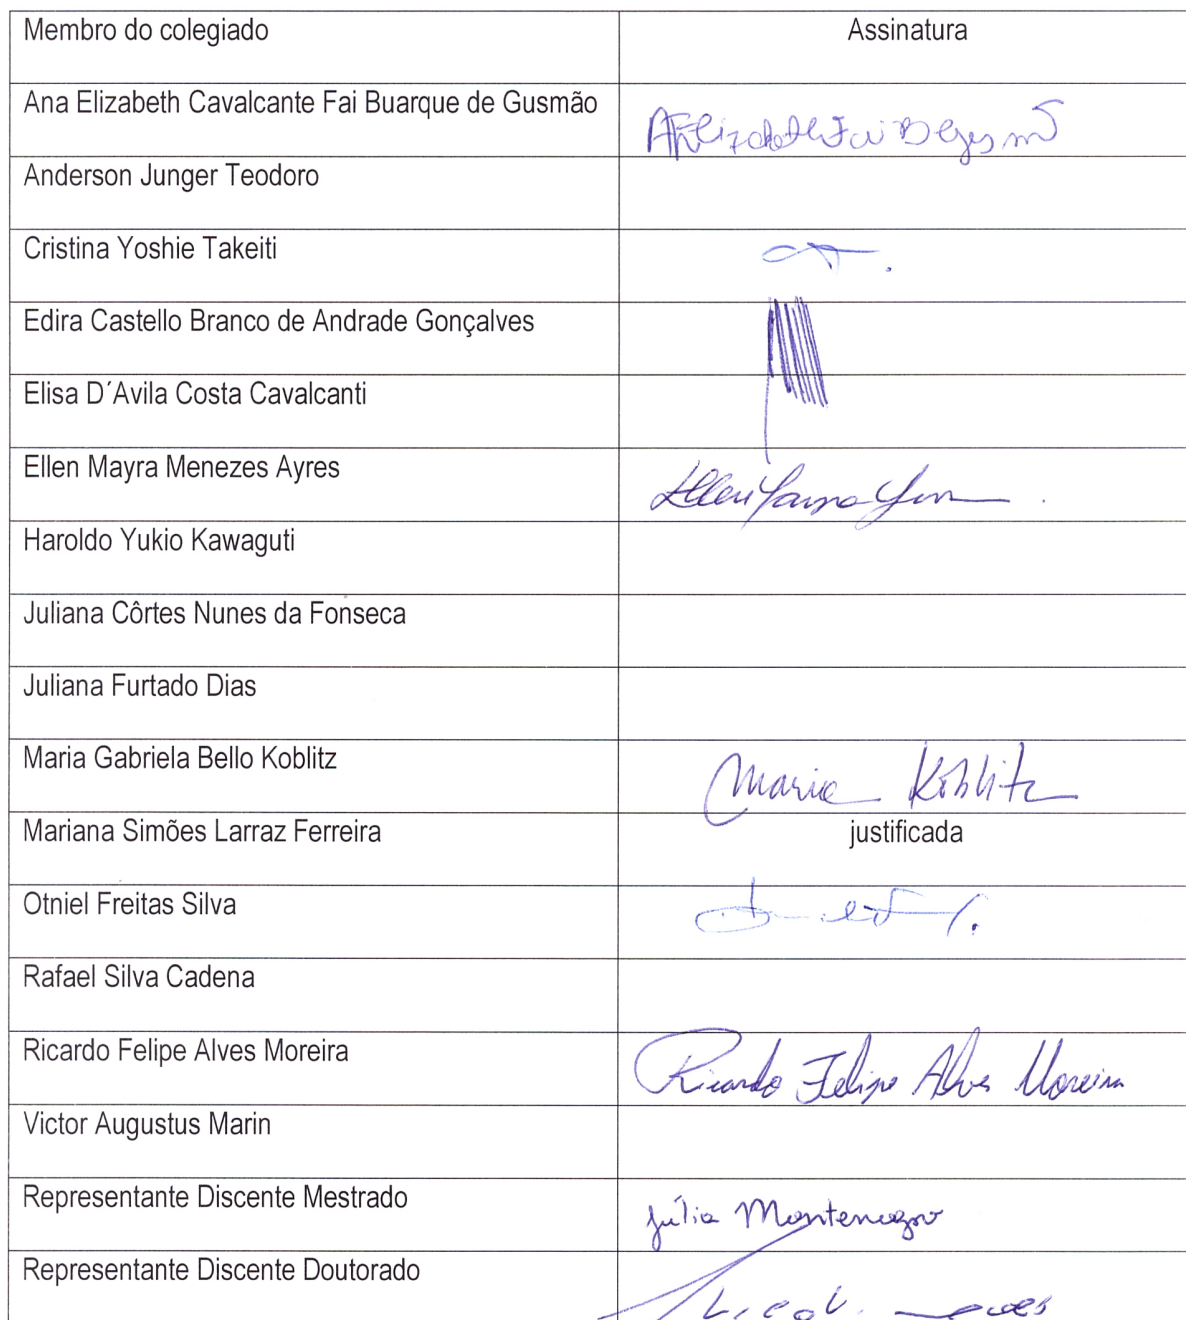 Membro do colegiado Assinatura
Ana Elizabeth Cavalcante Fai Buarque de Gusmão
Anderson Junger Teodoro
Cristina Yoshie Takeiti
Edira Castello Branco de Andrade Gonçalves
Elisa D´Avila Costa Cavalcanti
Ellen Mayra Menezes Ayres
Haroldo Yukio Kawaguti
Juliana Côrtes Nunes da Fonseca
Juliana Furtado Dias
Maria Gabriela Bello Koblitz Maria Koblitz
Mariana Simões Larraz Ferreira justificada
Otniel Freitas Silva
Rafael Silva Cadena
Ricardo Felipe Alves Moreira Ricardo Felipe Alves Moreira
Victor Augustus Marin
Representante Discente Mestrado Júlia Montenegro
Representante Discente Doutorado